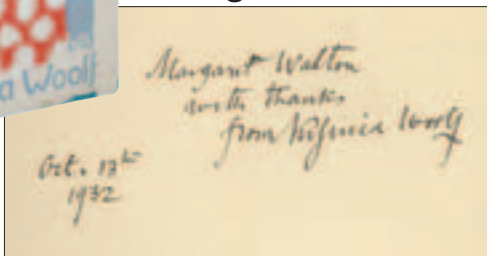 a Woolf
Margaret Walton
with thanks
from Virginia Woolf
Oct. 13th
1932